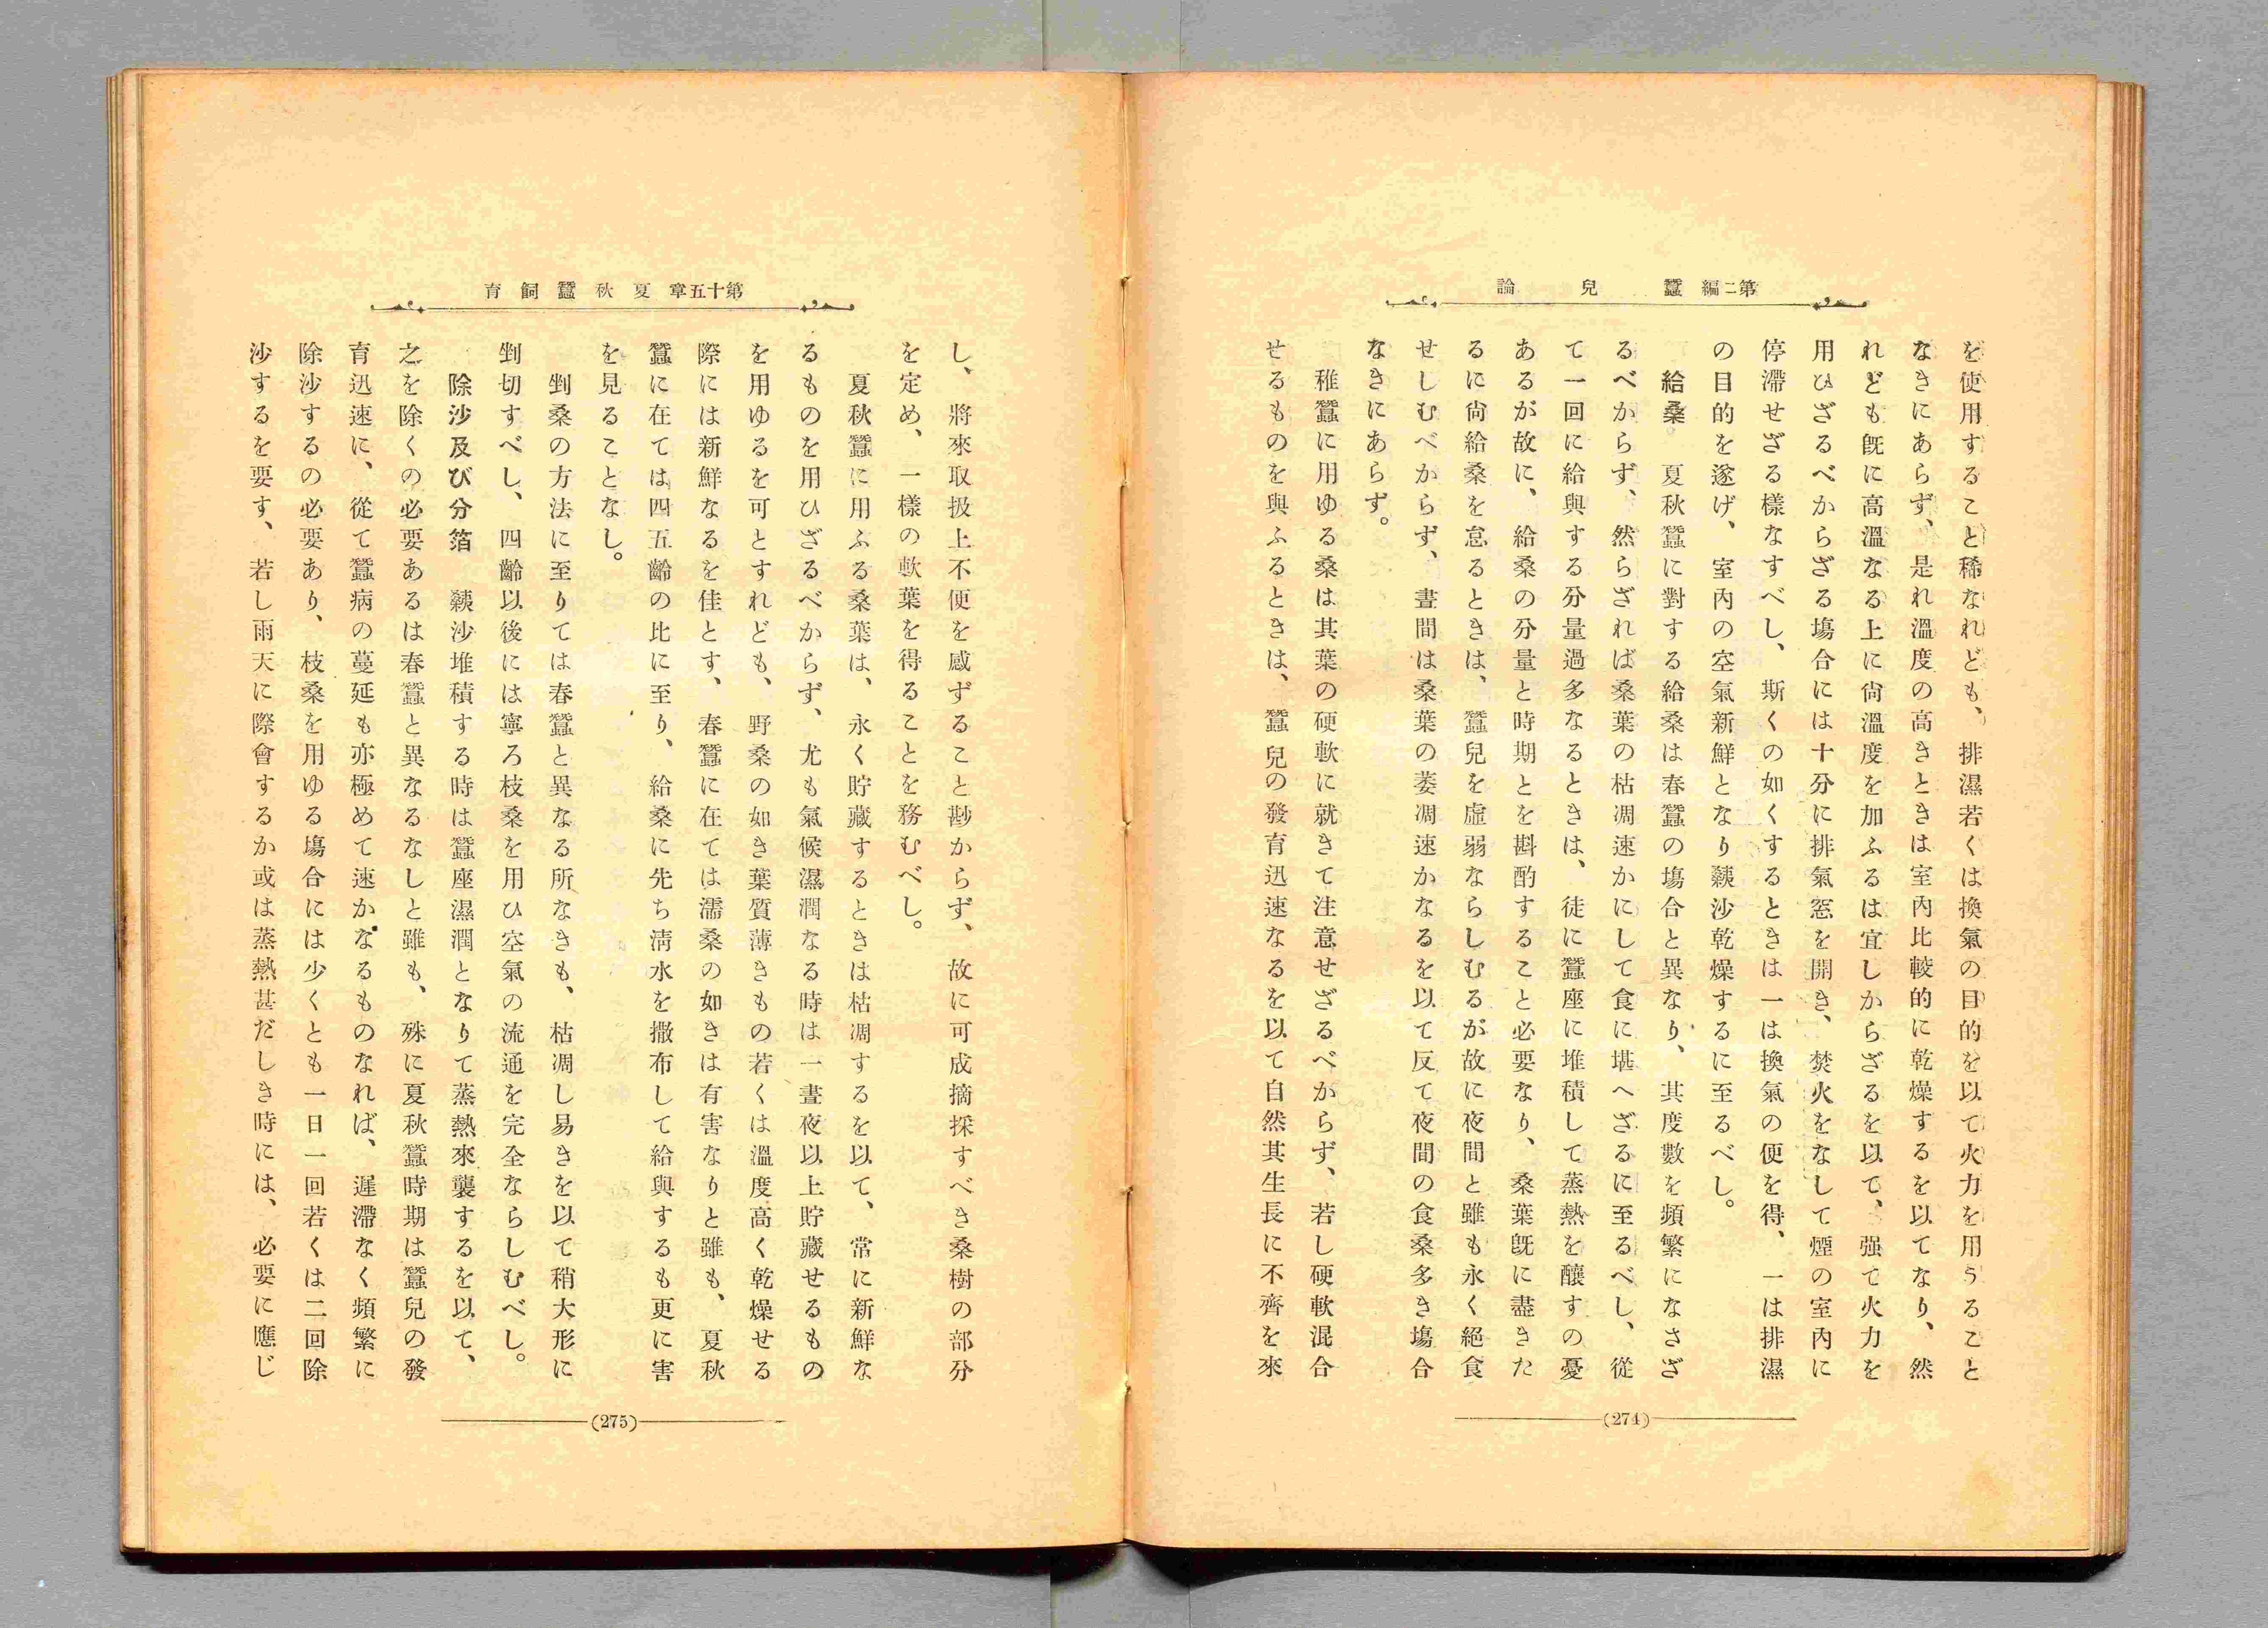 第二編　蠶兒論
を使用すること稀なれども、排濕若くは換氣の目的を以て火力を用うること
なきにあらず、是れ溫度の高きときは室內比較的に乾燥するを以てなり、然
れども既に高溫なる上に尙溫度を加ふるは宜しからざるを以て、强て火力を
用ひざるべからざる塲合には十分に排氣窓を開き、焚火をなして煙の室內に
停滯せざる樣なすべし、斯くの如くするときは一は換氣の便を得、一は排濕
の目的を遂げ、室內の空氣新鮮となり蘱沙乾燥するに至るべし。
給桑。夏秋蠶に對する給桑は春蠶の塲合と異なり、其度數を頻繁になさざ
るべからず、然らざれば桑葉の枯凋速かにして食に堪へざるに至るべし、從
て一回に給與する分量過多なるときは、徒に蠶座に堆積して蒸熱を釀すの憂
あるが故に、給桑の分量と時期とを斟酌すること必要なり、桑葉既に盡きた
るに尙給桑を怠るときは、蠶兒を虛弱ならしむるが故に夜間と雖も永く絕食
せしむべからず、晝間は桑葉の萎凋速かなるを以て反て夜間の食桑多き塲合
なきにあらず。
稚蠶に用ゆる桑は其葉の硬軟に就きて注意せざるべからず、若し硬軟混合
せるものを與ふるときは、蠶兒の發育迅速なるを以て自然其生長に不齊を來
(274)
第十五章　夏秋蠶飼育
し、將來取扱上不便を感ずること尠からず、故に可成摘採すべき桑樹の部分
を定め、一樣の軟葉を得ることを務むべし。
夏秋蠶に用ふる桑葉は、永く貯藏するときは枯凋するを以て、常に新鮮な
るものを用ひざるべからず、尤も氣候濕潤なる時は一晝夜以上貯藏せるもの
を用ゆるを可とすれども、野桑の如き葉質薄きもの若くは溫度高く乾燥せる
際には新鮮なるを佳とす、春蠶に在ては濡桑の如きは有害なりと雖も、夏秋
蠶に在ては四五齡の比に至り、給桑に先ち淸水を撒布して給與するも更に害
を見ることなし。
剉桑の方法に至りては春蠶と異なる所なきも、枯凋し易きを以て稍大形に
剉切すべし、四齡以後には寧ろ枝桑を用ひ空氣の流通を完全ならしむべし。
除沙及び分箔　沙堆積する時は蠶座濕潤となりて蒸熱來襲するを以て、
之を除くの必要あるは春蠶と異なるなしと雖も、殊に夏秋蠶時期は蠶兒の發
育迅速に、從て蠶病の蔓延も亦極めて速かなるものなれば、遲滯なく頻繁に
除沙するの必要あり、枝桑を用ゆる塲合には少くとも一日一回若くは二回除
沙するを要す、若し雨天に際會するか或は蒸熱甚だしき時には、必要に應じ
(275)